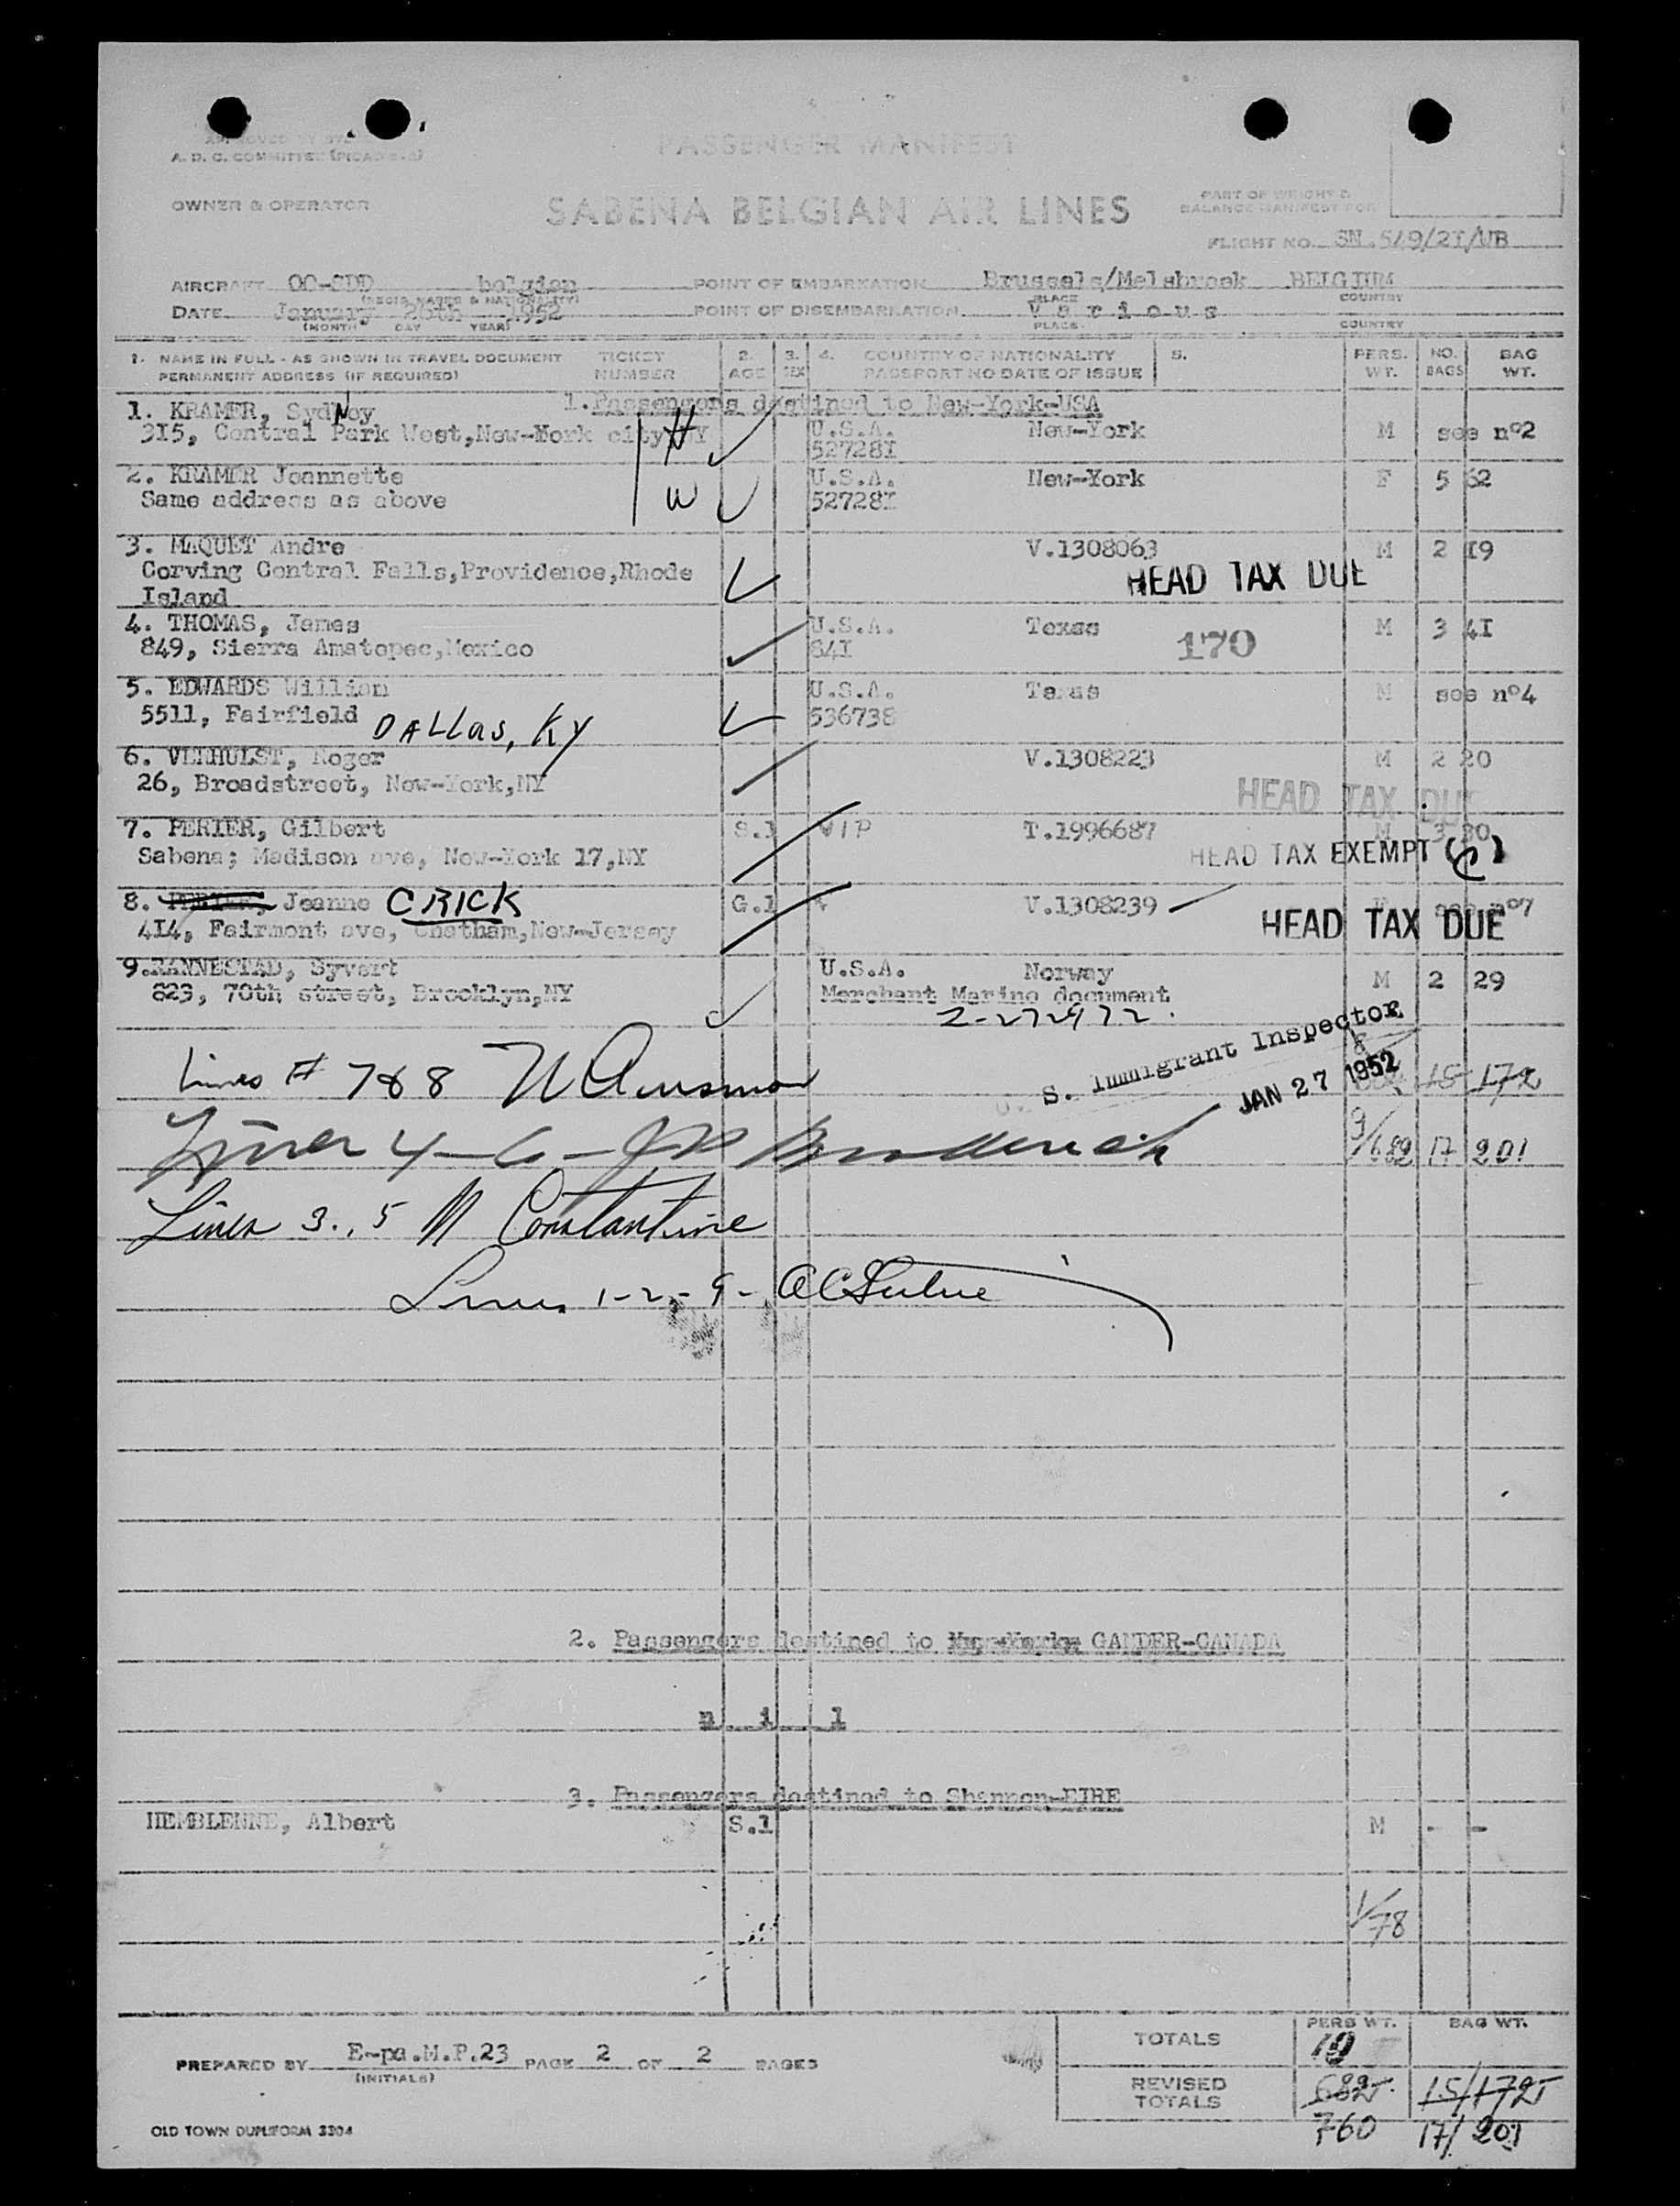 APPROVED BY
A. D. C. COMMITTEE
PASSENGER MANIFEST
OWNER & OPERATOR
SABENA BELGIAN AIR LINES
PART OF WEIGHT &
BALANCE MANIFEST FOR
FLIGHT NO. SN.549/2I/VB
AIRCRAFT OO-SDD belgian POINT OF EMBARKATION Brussels/Melsbroek BELGIUM
(REGIS. MARKS & NATIONALITY) PLACE COUNTRY
DATE January 26th 1952 POINT OF DISEMBARKATION V a r i o u s
(MONTH DAY YEAR) PLACE COUNTRY
1. NAME IN FULL - AS SHOWN IN TRAVEL DOCUMENT TICKET 2. 3. 4. COUNTRY OF NATIONALITY 5. PERS. NO. BAG
PERMANENT ADDRESS (IF REQUIRED) NUMBER AGE SEX PASSPORT NO DATE OF ISSUE WT. BAGS WT.
1.Passengers destined to New-York-USA
1. KRAMER, SydNoy
315, Central Park West,New-York city NY H U.S.A. New-York M see nº2
52728I
2. KRAMER Jeannette U.S.A. New-York F 5 62
Same address as above W 52728I
3. MAQUET Andre V.1308063 M 2 I9
Corving Central Falls,Providence,Rhode HEAD TAX DUE
Island
4. THOMAS, James U.S.A. Texas M 3 4I
849, Sierra Amatepec,Mexico 64I 170
5. EDWARDS William U.S.A. Texas M see nº4
5511, Fairfield DALLas, Ky 536738
6. VERHULST, Roger V.1308223 M 2 20
26, Broadstreet, New-York,NY HEAD TAX DUE
7. PERIER, Gilbert S.1 VIP T.1996687 M 3 30
Sabena; Madison ave, New-York 17,NY HEAD TAX EXEMPT (C)
8. PERIER, Jeanne CRICK G.1 V.1308239 F see nº7
4I4, Fairmont ave, Chatham,New-Jersey HEAD TAX DUE
9.RANNESTAD, Syvert U.S.A. Norway M 2 29
823, 70th street, Brooklyn,NY Merchant Marine document
Z-272972.
U. S. Immigrant Inspector
JAN 27 1952
Lines # 7&8
15 172
Lines 4-6-
9/682 17 201
Lines 3., 5 M Constantine
Lines 1-2-9-
2. Passengers destined to GANDER-CANADA
n i l
3. Passengers destined to Shannon-EIRE
HEMBLENNE, Albert S.1 M - -
1/78
PERS WT. BAG WT.
TOTALS 10
PREPARED BY E-pa.M.P.23 PAGE 2 OF 2 PAGES
(INITIALS)
REVISED TOTALS 682 15/172
760 17/201
OLD TOWN DUPLIFORM 3304